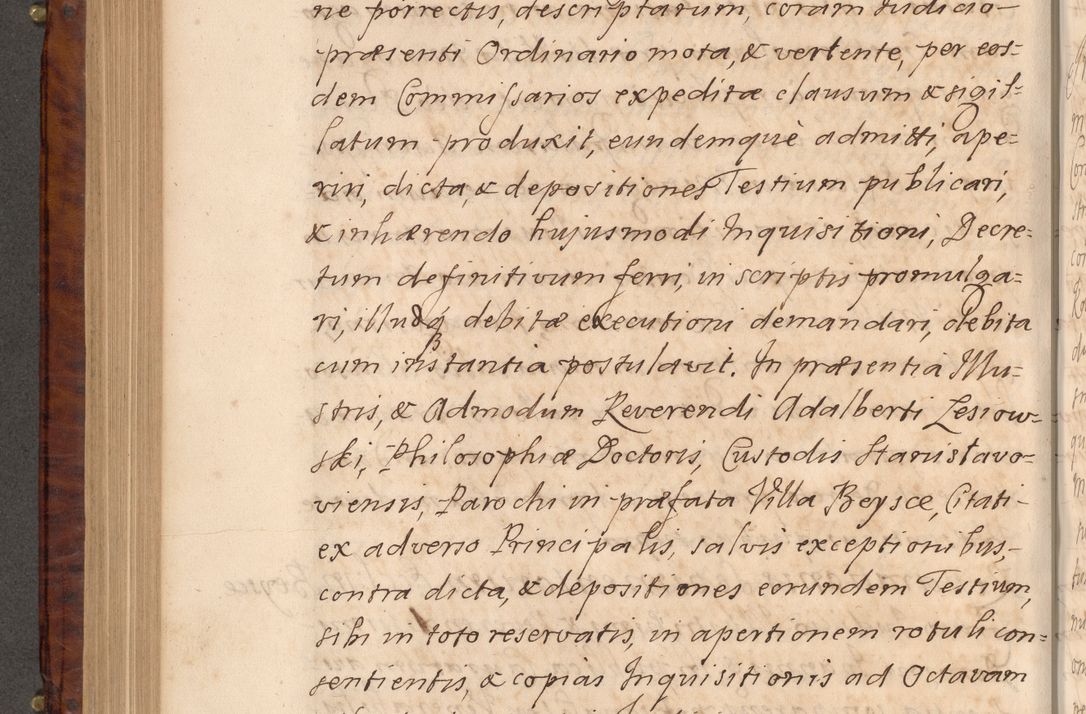 ne porrectis, descriptarum, coram Iudicio
præsenti Ordinario mota, & vertente, per eos=
dem Commissarios expeditæ clausum & sigil=
latum produxit, eundemquè admitti, ape=
riri, dicta, & depositiones Testium publicari,
& inhærendo hujusmodi Inquisitioni, Decre=
tum definitivum ferri, in scriptis promulga=
ri, illudq debitæ executioni demandari, debita
cum instantia postulavit. In præsentia Illu=
stris, & Admodum Reverendi Adalberti Lesiow=
ski, Philosophiæ Doctoris, Custodis Stanislavo=
viensis, Parochi in præfata Villa Beysce, Citati
ex adverso Principalis, salvis exceptionibus,
contra dicta, & depositiones eorundem Testium,
sibi in toto reservatis, in apertionem rotuli con=
sentientis, & copias Inquisitionis ad Octavam